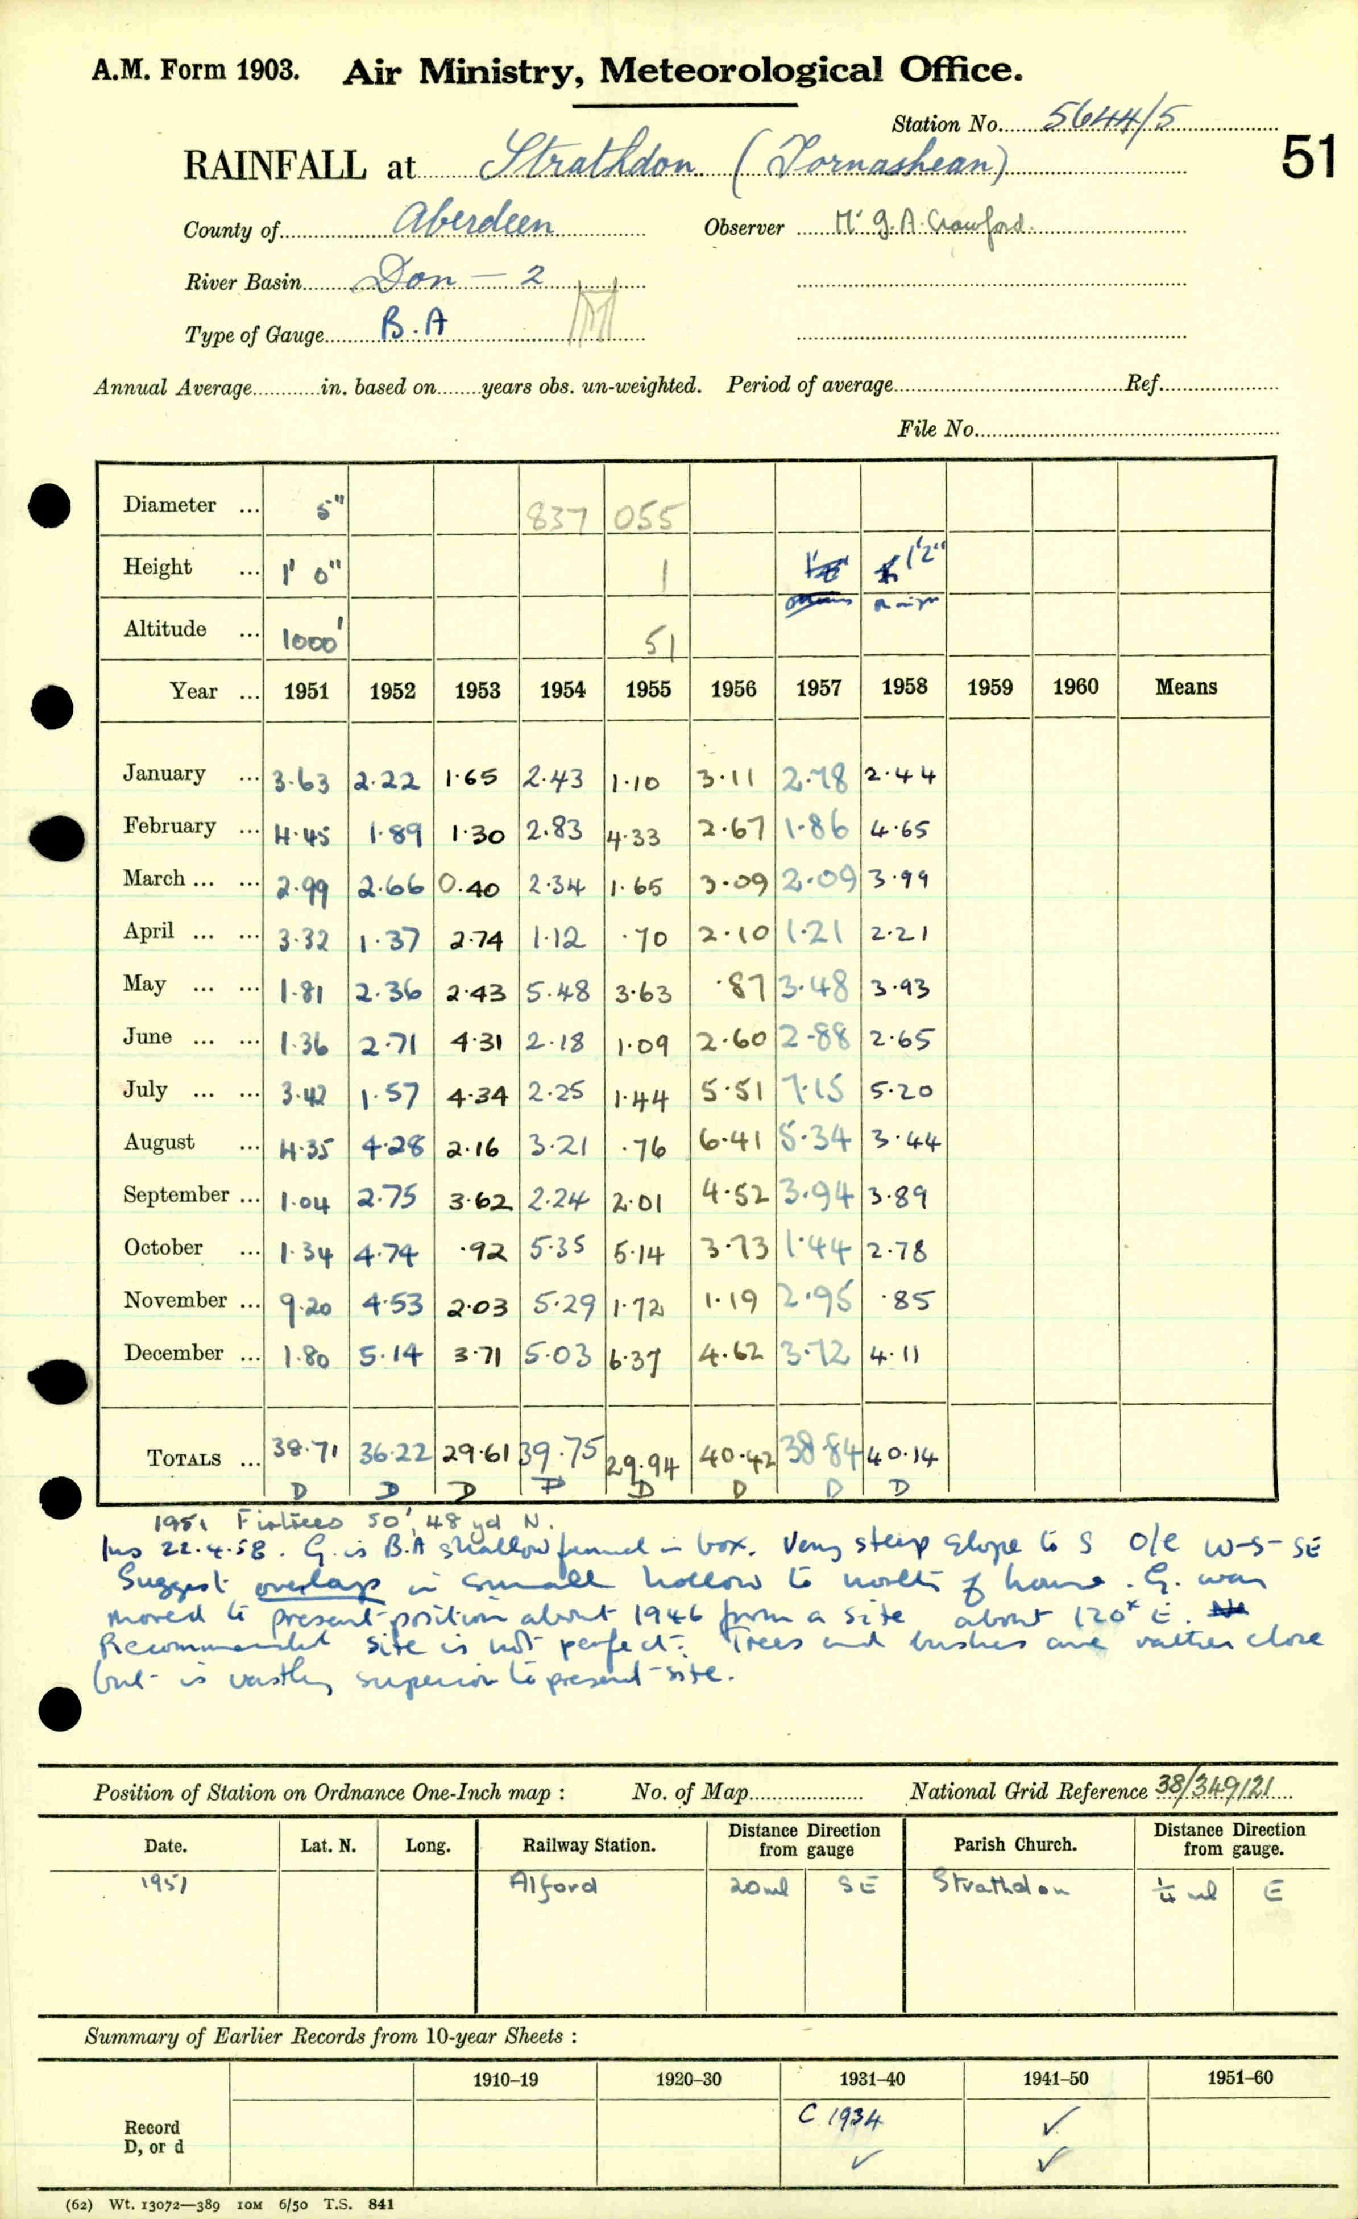 A.M. Form 1903. Air Ministry, Meteorological Office.
Station No. 5644/5
RAINFALL at Strathdon (Tornashean)
51
County of Aberdeen Observer Mr G.A. Crawford.
River Basin Don - 2
Type of Gauge B.A
Annual Average in. based on years obs. un-weighted. Period of average Ref.
File No.
Diameter ... 5" 837 055
Height ... 1' 0" 1 1'2"
Altitude ... 1000' 51
Year ... 1951 1952 1953 1954 1955 1956 1957 1958 1959 1960 Means
January ... 3.63 2.22 1.65 2.43 1.10 3.11 2.78 2.44
February ... 4.45 1.89 1.30 2.83 4.33 2.67 1.86 4.65
March ... ... 2.99 2.66 0.40 2.34 1.65 3.09 2.09 3.99
April ... ... 3.32 1.37 2.74 1.12 .70 2.10 1.21 2.21
May ... ... 1.81 2.36 2.43 5.48 3.63 .87 3.48 3.93
June ... ... 1.36 2.71 4.31 2.18 1.09 2.60 2.88 2.65
July ... ... 3.42 1.57 4.34 2.25 1.44 5.51 7.15 5.20
August ... 4.35 4.28 2.16 3.21 .76 6.41 5.34 3.44
September ... 1.04 2.75 3.62 2.24 2.01 4.52 3.94 3.89
October ... 1.34 4.74 .92 5.35 5.14 3.73 1.44 2.78
November ... 9.20 4.53 2.03 5.29 1.72 1.19 2.95 .85
December ... 1.80 5.14 3.71 5.03 6.37 4.62 3.72 4.11
TOTALS ... 38.71 36.22 29.61 39.75 29.94 40.42 38.84 40.14
D D D D D D D D
1951 Firtrees 50', 48 yd N.
Ins 22.4.58. G. is B.A shallow funnel in box. Very steep slope to S O/E W-S-SE
Suggest overlap in small hollow to north of house. G. was
moved to present position about 1946 from a site about 120x E.
Recommended site is not perfect. Trees and bushes are rather close
but is vastly superior to present site.
Position of Station on Ordnance One-Inch map : No. of Map National Grid Reference 38/349121
Date. Lat. N. Long. Railway Station. Distance Direction from gauge Parish Church. Distance Direction from gauge.
1951 Alford 20ml SE Strathdon ¼ ml E
Summary of Earlier Records from 10-year Sheets :
1910–19 1920–30 1931–40 1941–50 1951–60
Record C 1934 ✓
D, or d ✓ ✓
(62) Wt. 13072—389 10M 6/50 T.S. 841